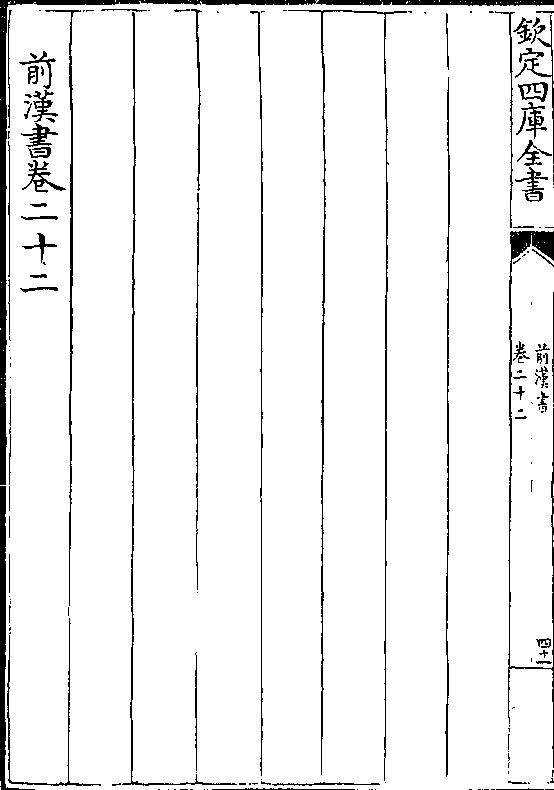 欽定四庫全書
前漢書
卷二十二
四十一
前漢書卷二十二